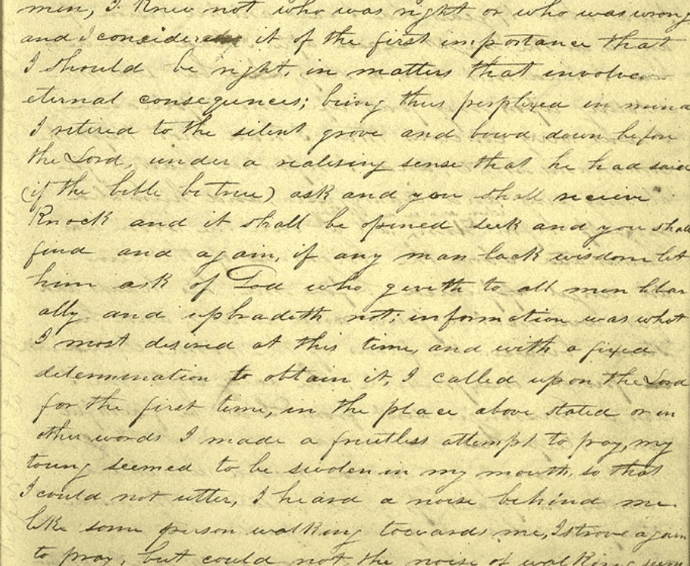 men, I knew not who was right or who was wrong
and I considered it of the first importance that
I should be right, in matters that involve
eternal consequences; being thus perplexed in mind
I retired to the silent grove and bowd down before
the Lord, under a realising sense that he had said
(if the bible be true) ask and you shall receive
knock and it shall be opened seek and you shall
find and again, if any man lack wisdom let
him ask of God who giveth to all men libar
ally and upbradeth not; information was what
I most desired at this time, and with a fixed
determination to obtain it, I called upon the Lord
for the first time, in the place above stated or in
other words I made a fruitless attempt to pray, my
toung seemed to be swolen in my mouth, so that
I could not utter, I heard a noise behind me
like some person walking towards me, I strove again
to pray, but could not the noise of walking